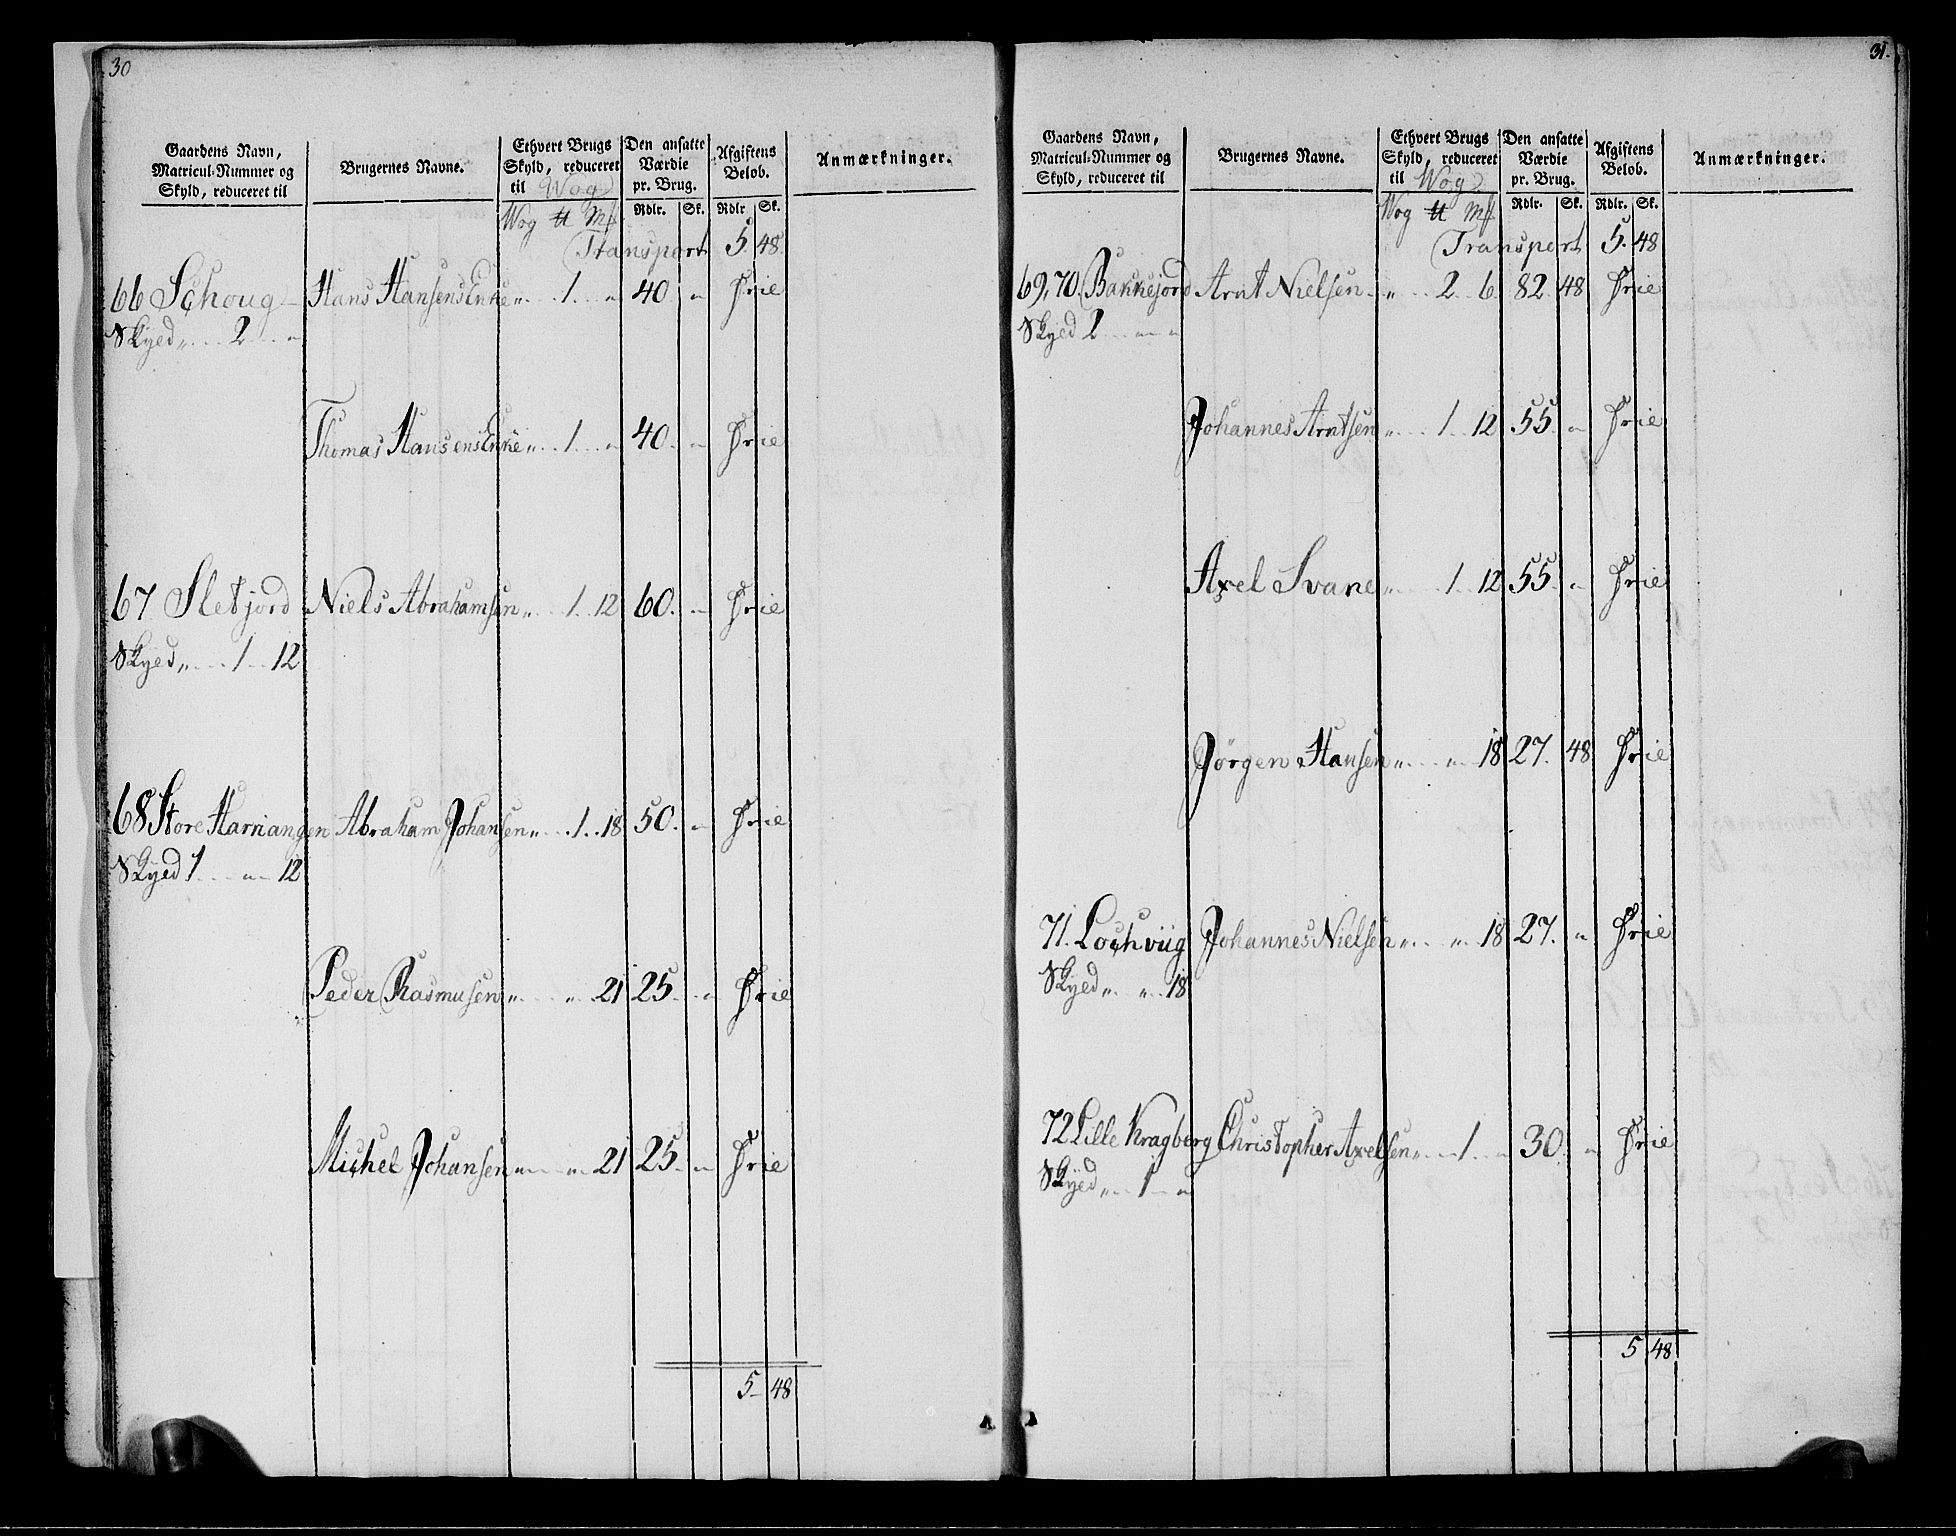 30
Gaardens Navn, Matricul-Nummer og Skyld, reduceret til
Brugernes Navne.
Ethvert Brugs Skyld, reduceret til Wog
Den ansatte Værdie pr. Brug.
Afgiftens Beløb.
Anmærkninger.
Wog ℔ Mk Rdlr. Sk. Rdlr. Sk.
Transport 5. 48.
66 Schoug Hans Hansens Enke „ 1 „ 40 „ Frie
Skyed „ 2 „
Thomas Hansens Enke „ 1 „ 40. „ Frie
67 Sletjord Niels Abrahamsen „ 1 12 60. „ Frie
Skyed „ 1 12
68 Store Harriangen Abraham Johansen „ 1 18 50. „ Frie
Skyed 1 „ 12
Peder Rasmusen „ „ 21 25. „ Frie
Michel Johansen „ „ 21 25. „ Frie
5 48
31.
Gaardens Navn, Matricul-Nummer og Skyld, reduceret til
Brugernes Navne.
Ethvert Brugs Skyld, reduceret til Wog
Den ansatte Værdie pr. Brug.
Afgiftens Beløb.
Anmærkninger.
Wog ℔ Mk Rdlr. Sk. Rdlr. Sk.
Transport 5. 48
69, 70. Bakkejord Arnt Nielsen „ 2 6 82 48 Frie
Skyed 2 „ „
Johannes Arntsen „ 1 12 55 „ Frie
Axel Svane „ 1 12 55. „ Frie
Jörgen Hansen „ „ 18 27. 48 Frie
71. Lochviig Johannes Nielsen „ „ 18 27. „ Frie
Skyed „ „ 18
72 Lille Kragberg Christopher Axelsen „ 1 „ 30. „ Frie
Skyed „ 1 „
5 48